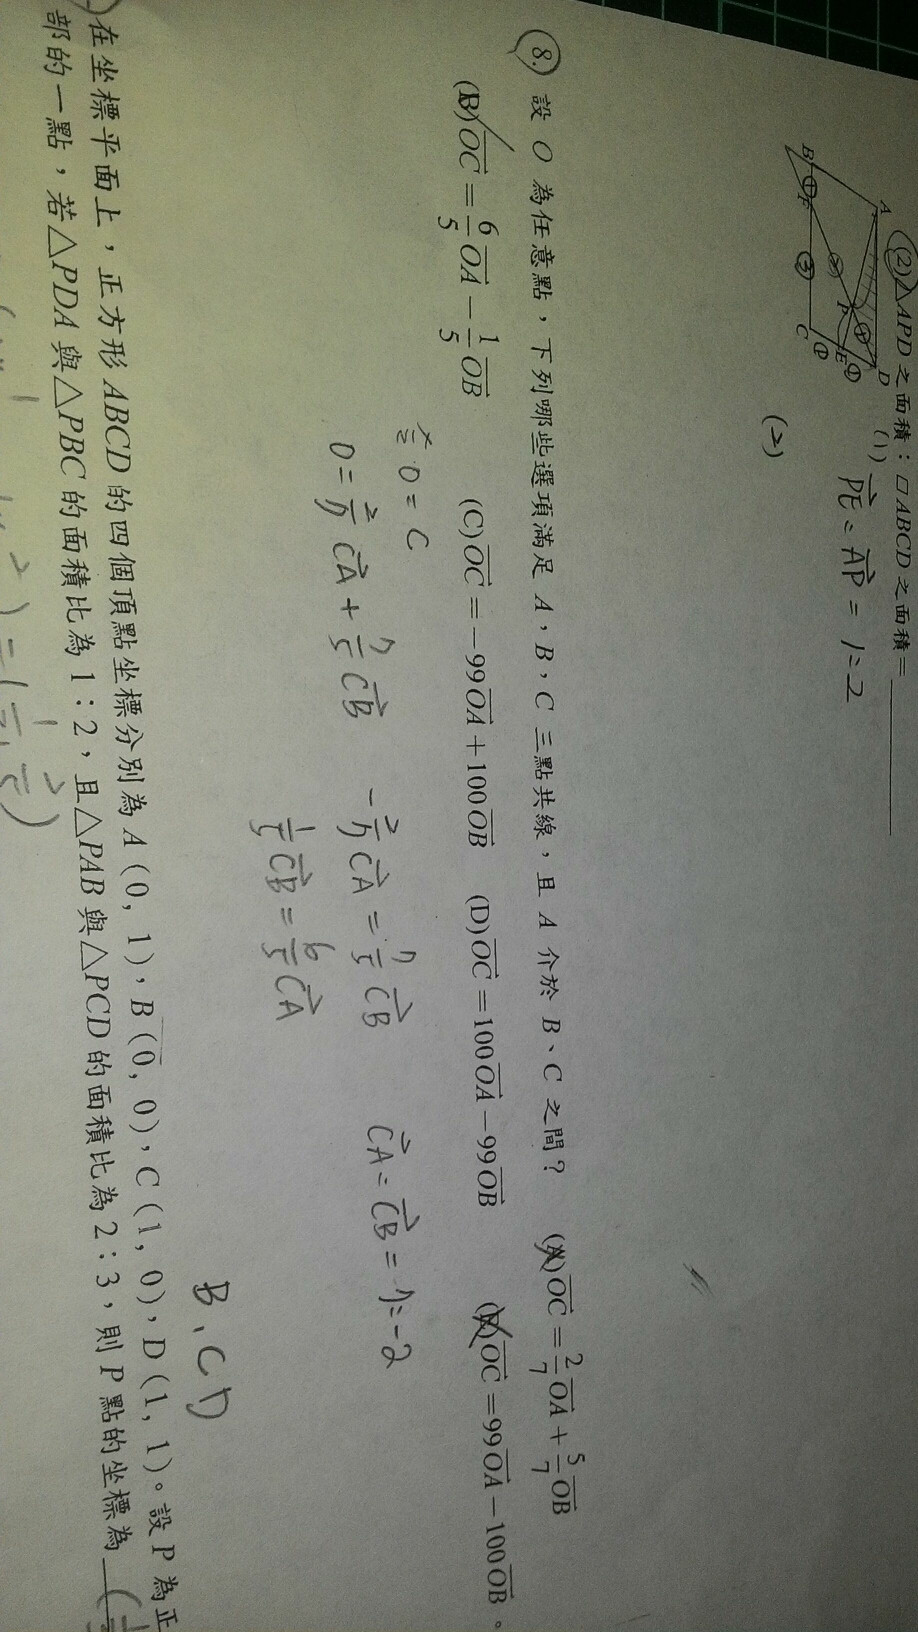 ②△APD 之面積：□ABCD 之面積=
A
B
C
D
E
F
P
①
③
②
④
①
①
(1) PE = AP = 1:2
(2)
8. 設 O 為任意點，下列哪些選項滿足 A，B，C 三點共線，且 A 介於 B、C 之間？ (A)OC=2/7 OA+5/7 OB
(B)OC=6/5 OA−1/5 OB (C)OC=−99OA+100OB (D)OC=100OA−99OB (E)OC=99OA−100OB。
O = C
O = 2/7 CA + CB
CA = CB
CB = 6/5 CA
CA = CB =
B、C D
在坐標平面上，正方形 ABCD 的四個頂點坐標分別為 A (0, 1)，B (0, 0)，C (1, 0)，D (1, 1)。設 P 為正
部的一點，若△PDA 與△PBC 的面積比為 1:2，且△PAB 與△PCD 的面積比為 2:3，則 P 點的坐標為